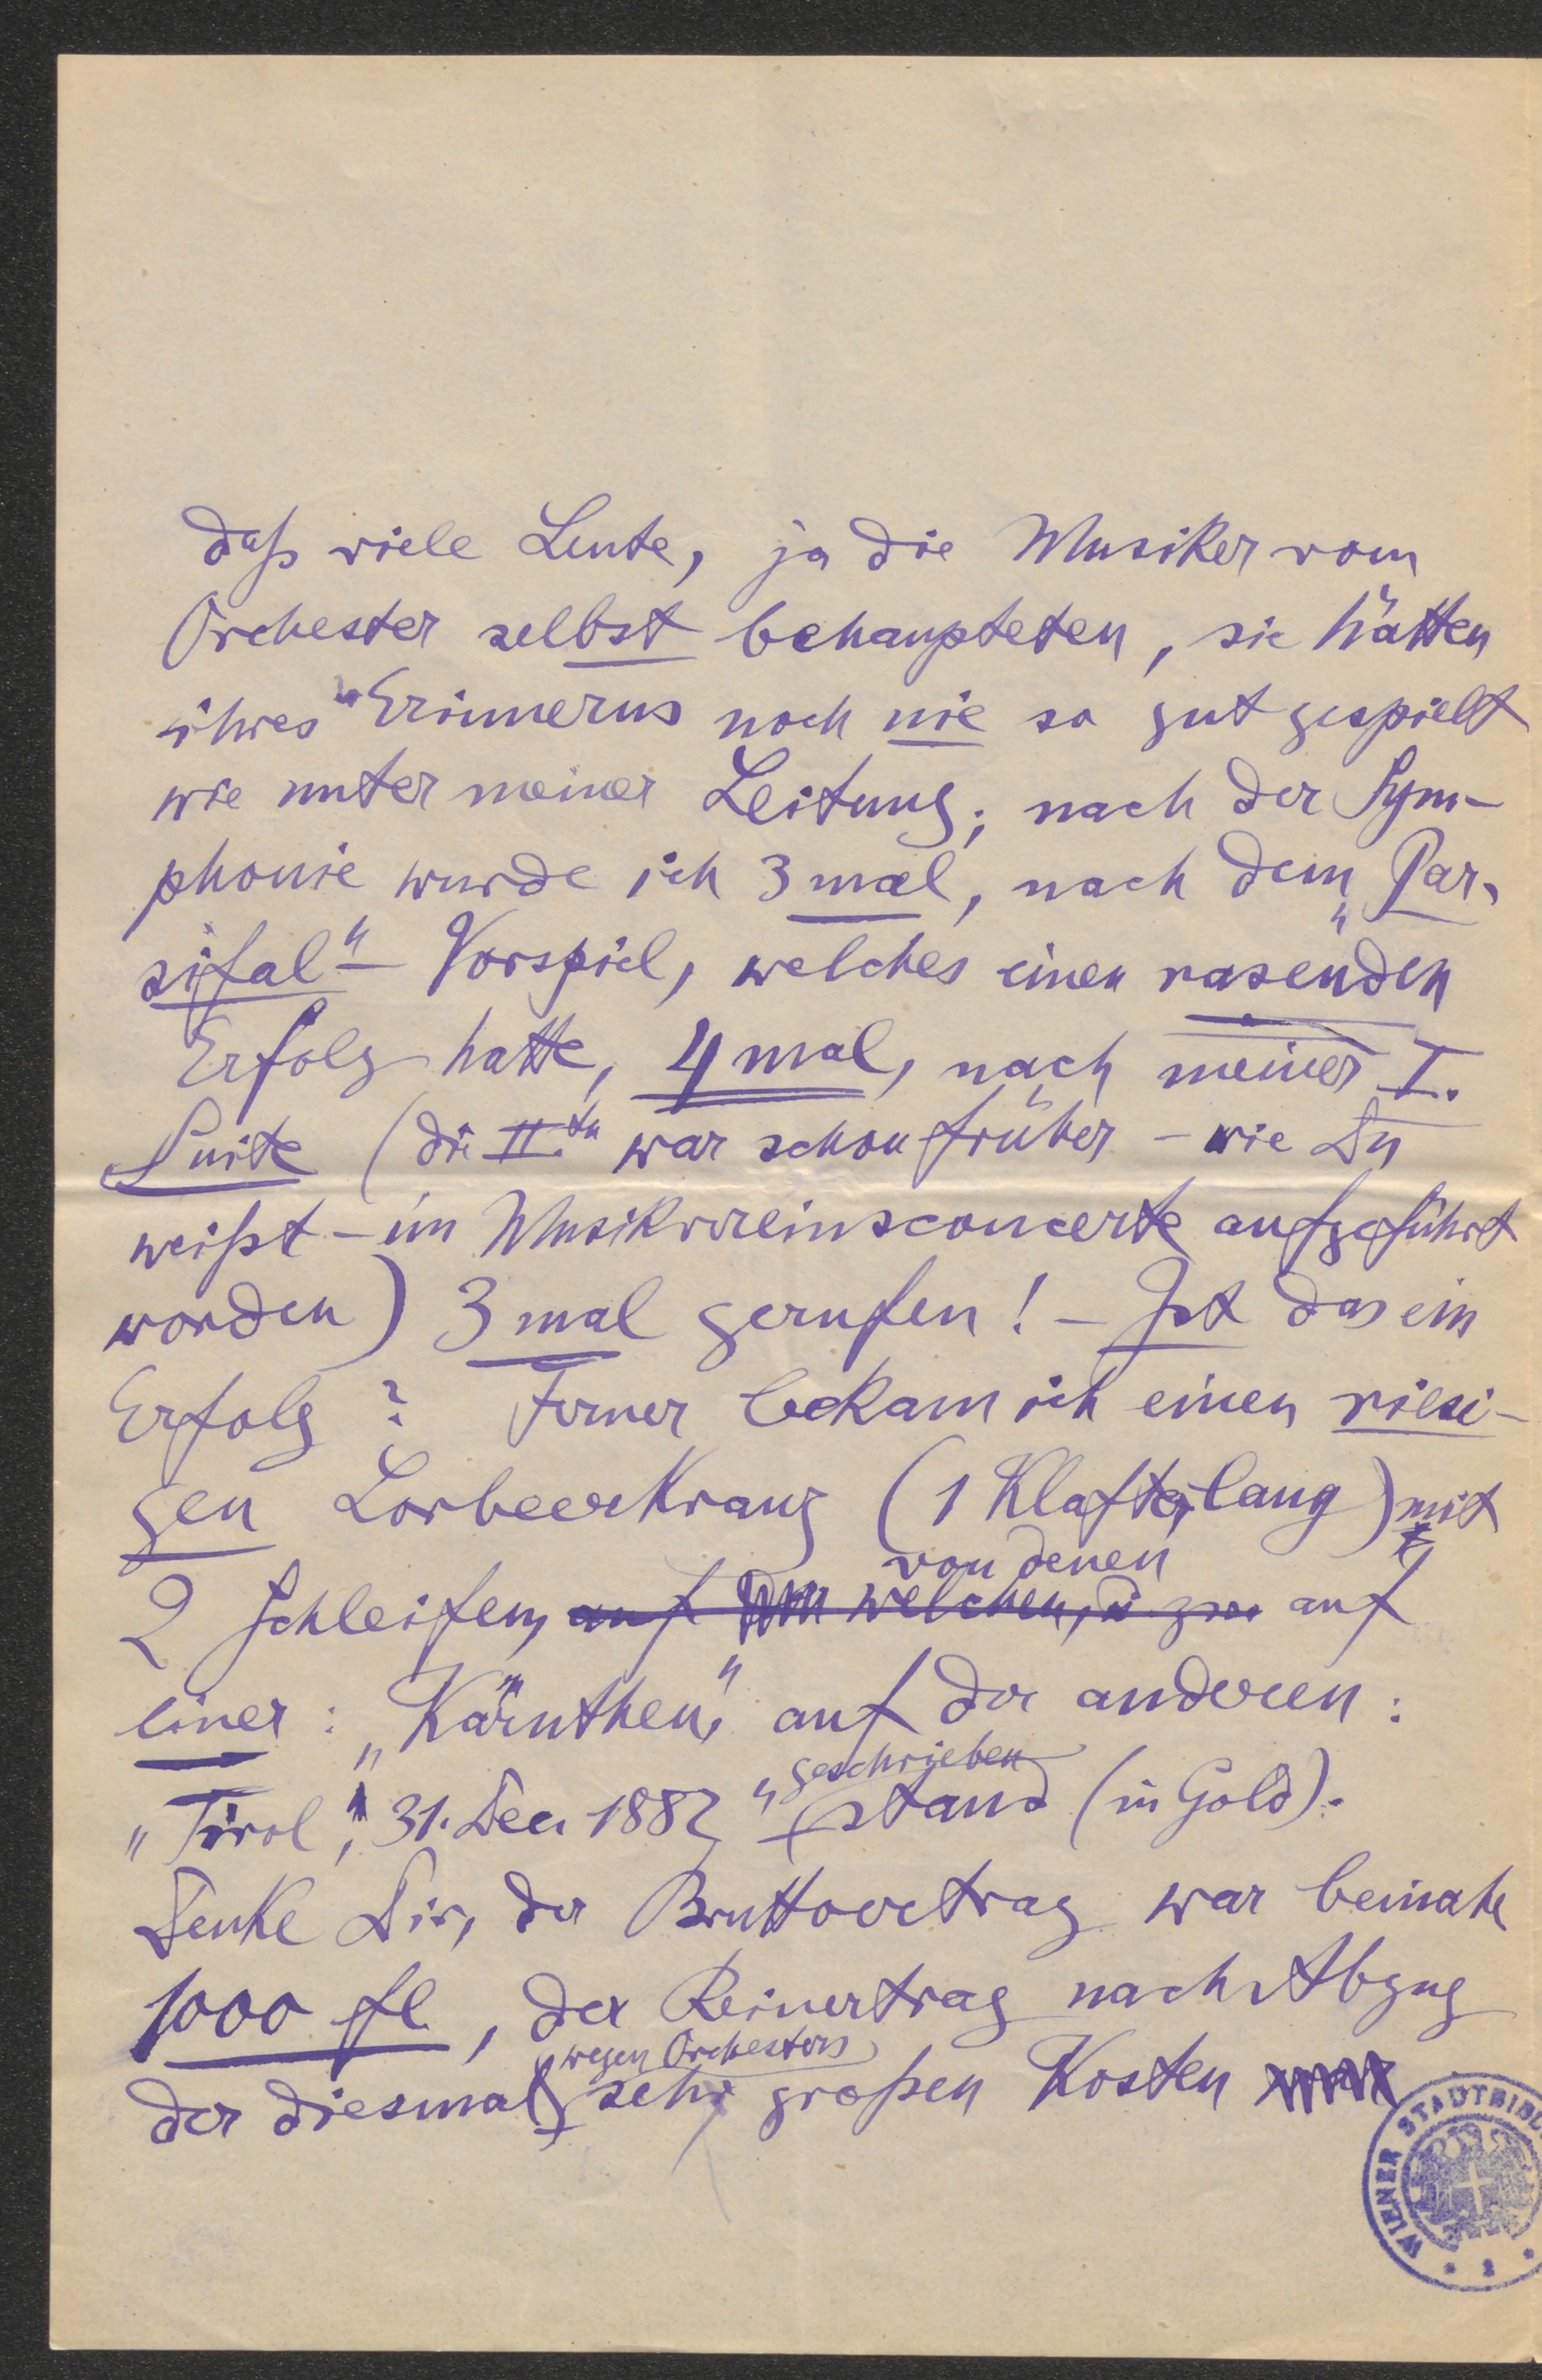 daß viele Leute, ja die Musiker vom
Orchester selbst behaupteten, sie hätten
ihres Erinnerns noch nie so gut gespielt
wie unter meiner Leitung; nach der Sym-
phonie wurde ich 3 mal, nach dem „Par-
sifal“ – Vorspiel, welches einen rasenden
Erfolg hatte, 4 mal, nach meiner I.
Suite (die II.te war schon früher – wie Du
weißt – im Musikvereinsconcerte aufgeführt
worden) 3 mal gerufen! – Ist das ein
Erfolg? Ferner bekam ich einen riesi-
gen Lorbeerkranz (1 Klafter lang) mit
von denen
2 Schleifen, auf welchen, auf
einer: „Kärnthen“, auf der anderen:
geschrieben
„Tirol“, 31. Dec. 1882“ stand (in Gold).
Denke Dir, der Bruttoertrag war beinahe
1000 fl., der Reinertrag nach Abzug
wegen Orchesters
der diesmal sehr großen Kosten
WIENER STADTBIBL